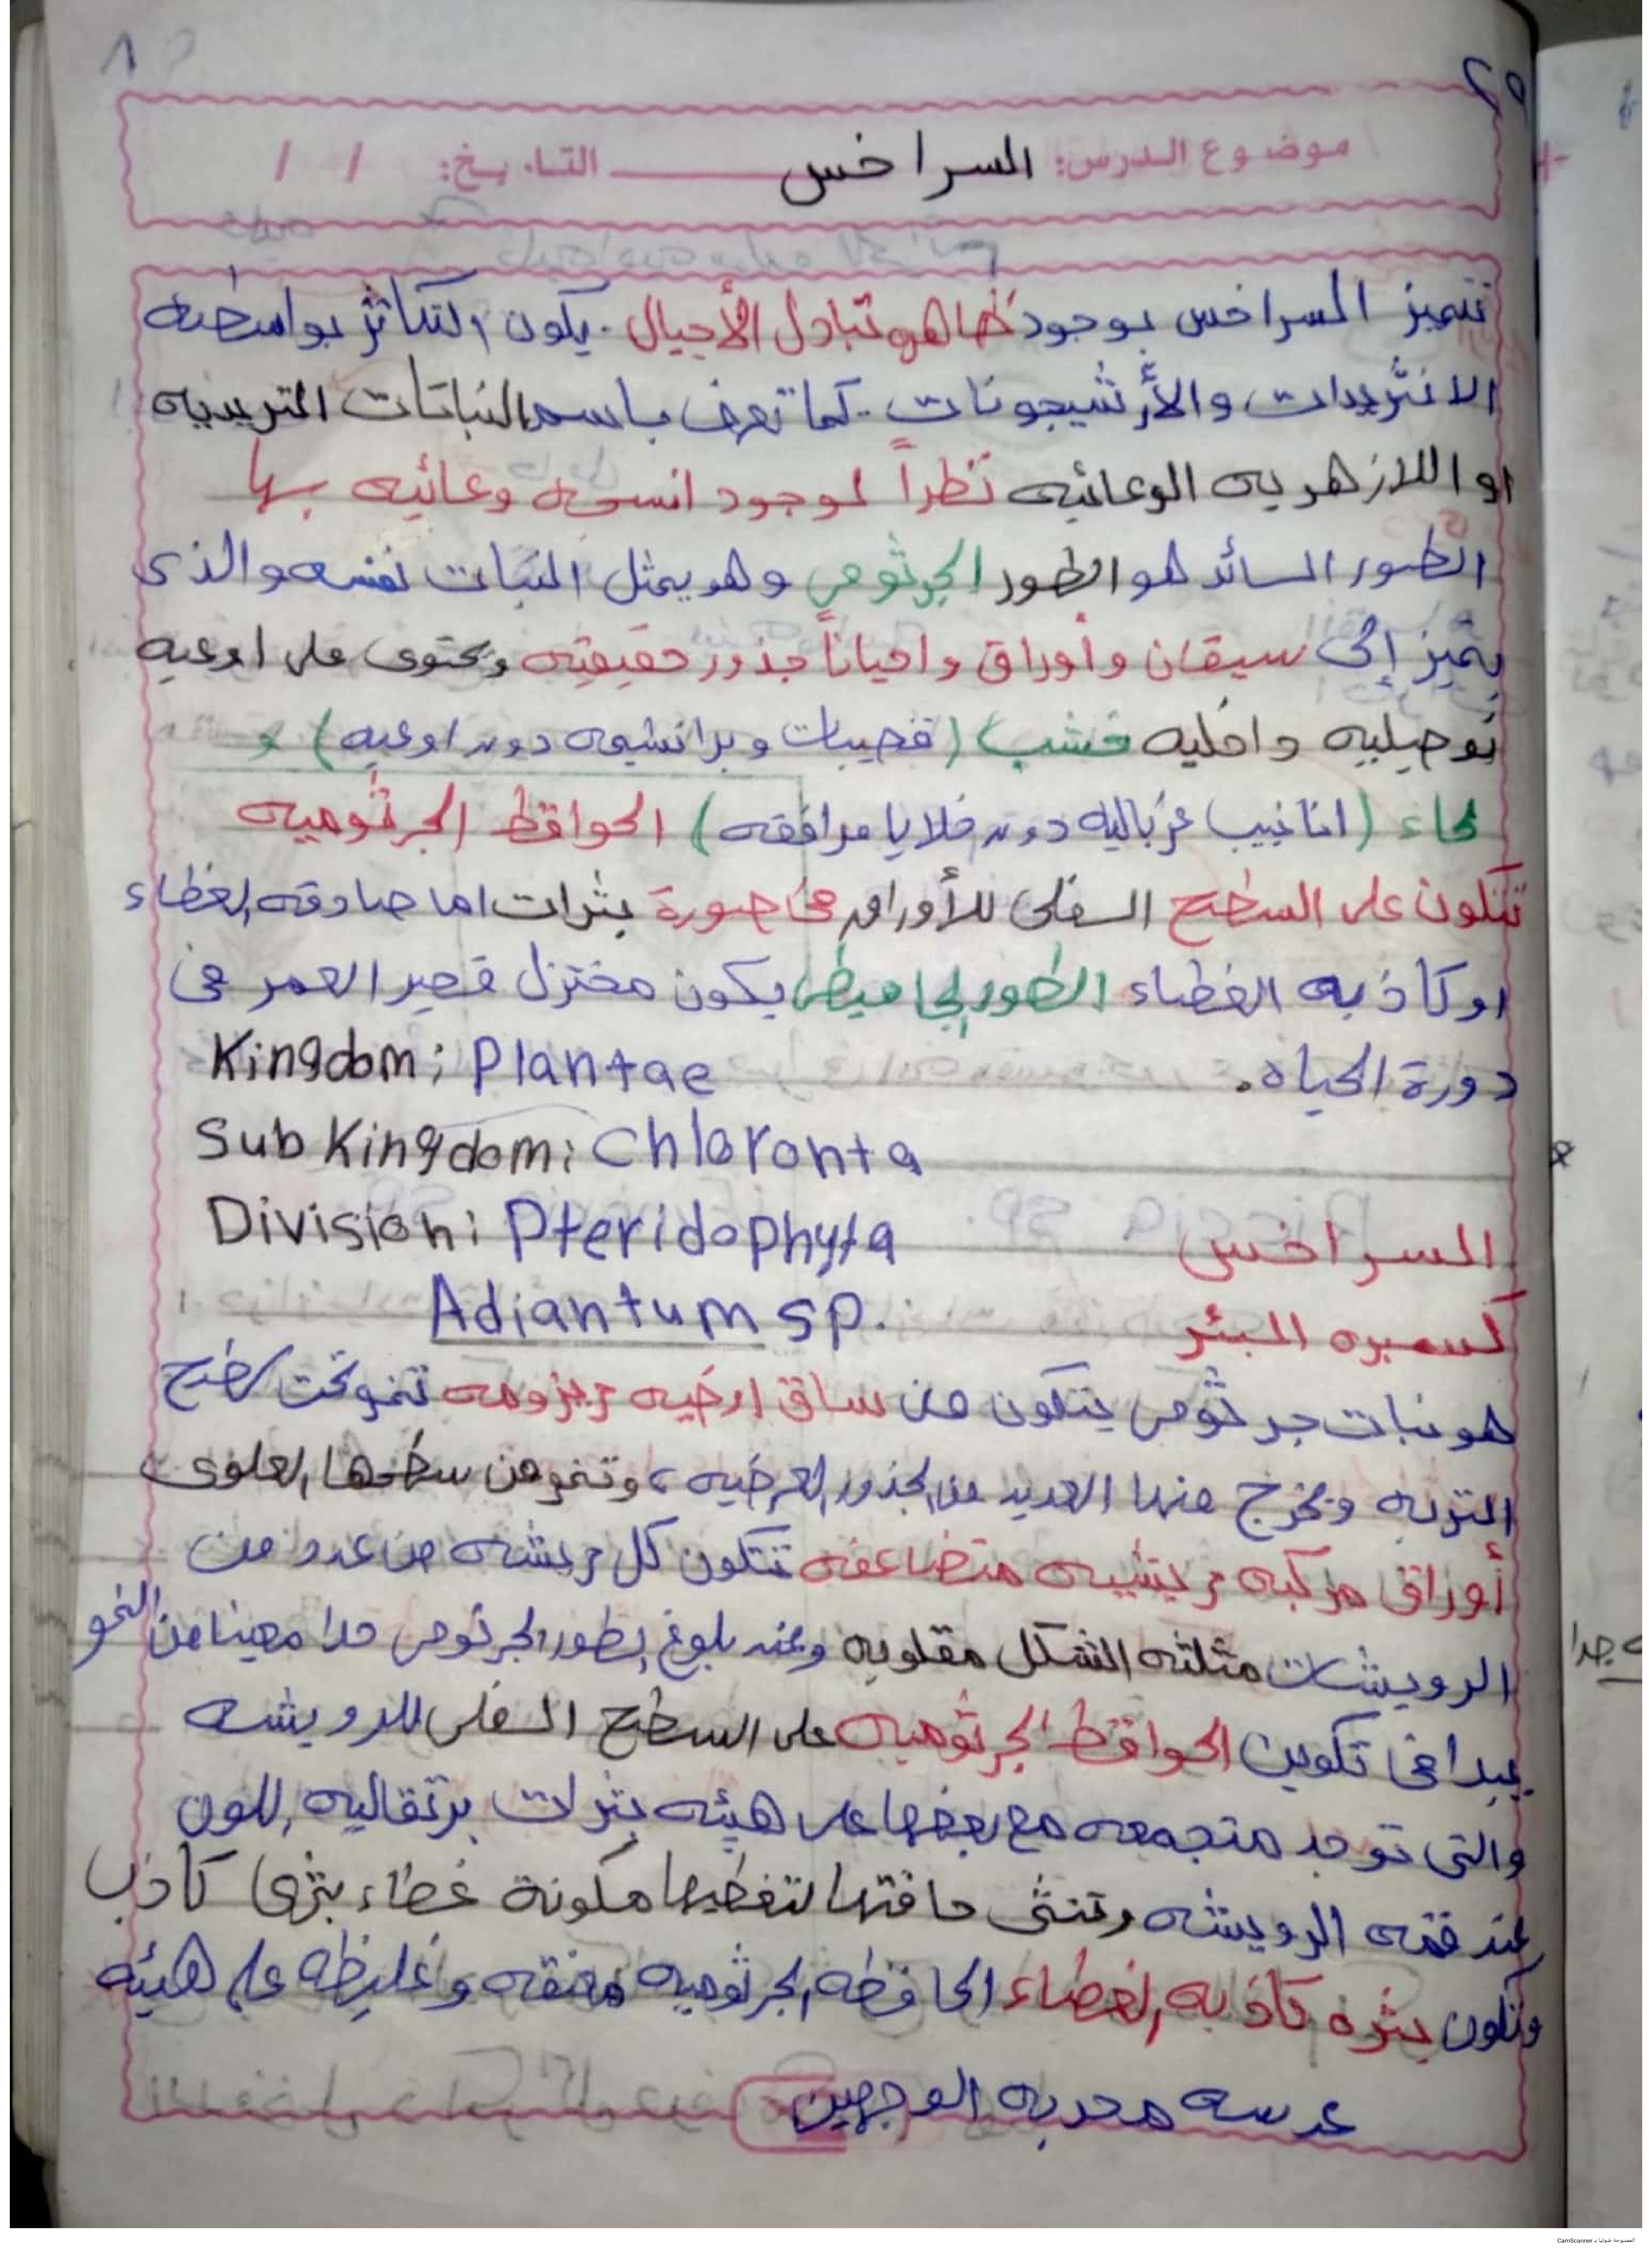 ٢٩
موضوع الدرس: السراخس التاريخ: / /
تتميز السراخس بوجود ظاهره تبادل الأجيال. يكون التكاثر بواسطه
الانثريدات والأرشيجونات. كما تعرف باسم النباتات التريديه
او اللازهريه الوعائيه نظراً لوجود انسجه وعائيه بها
الطور السائد هو الطور الجرثومي وهو يمثل النبات نفسه والذى
يتميز إلى سيقان وأوراق واحياناً جذور حقيقيه ويحتوى على اوعيه
توصيليه داخليه خشب (قصيبات وبرانشيمه دون اوعيه) و
لحاء (انابيب غرباليه دون خلايا مرافقه) الحوافظ الجرثوميه
تتكون على السطح السفلى للأوراق في صورة بثرات اما صادقه الغطاء
او كاذبه الغطاء الطور الجاميطى يكون مختزل قصير العمر فى
دورة الحياه.
Kingdom: Plantae
Sub Kingdom: Chloronta
Division: Pteridophyta السراخس
Adiantum sp. كسبره البئر
هو نبات جرثومى يتكون من ساق ارضيه ريزومه تنمو تحت سطح
التربه ويخرج منها العديد من الجذور العرضيه، وتنمو من سطحها العلوى
أوراق مركبه ريشيه متضاعفه تتكون كل ريشه من عدد من
الرويشات مثلثه الشكل مقلوبه وعند بلوغ الطور الجرثومى حدا معينا من النمو
يبدا فى تكوين الحوافظ الجرثوميه على السطح السفلى للرويشه
والتى توجد متجمعه مع بعضها على هيئه بثرات برتقاليه اللون
عند قمه الرويشه وتنثنى حافتها لتغطيها مكونة غطاء بثرى كاذب
وتكون بثره كاذبه الغطاء الحافظه الجرثوميه معنقه وغليظه على هيئه
عدسه محدبه الوجهين
جدا
الممسوحة ضوئيا بـ CamScanner